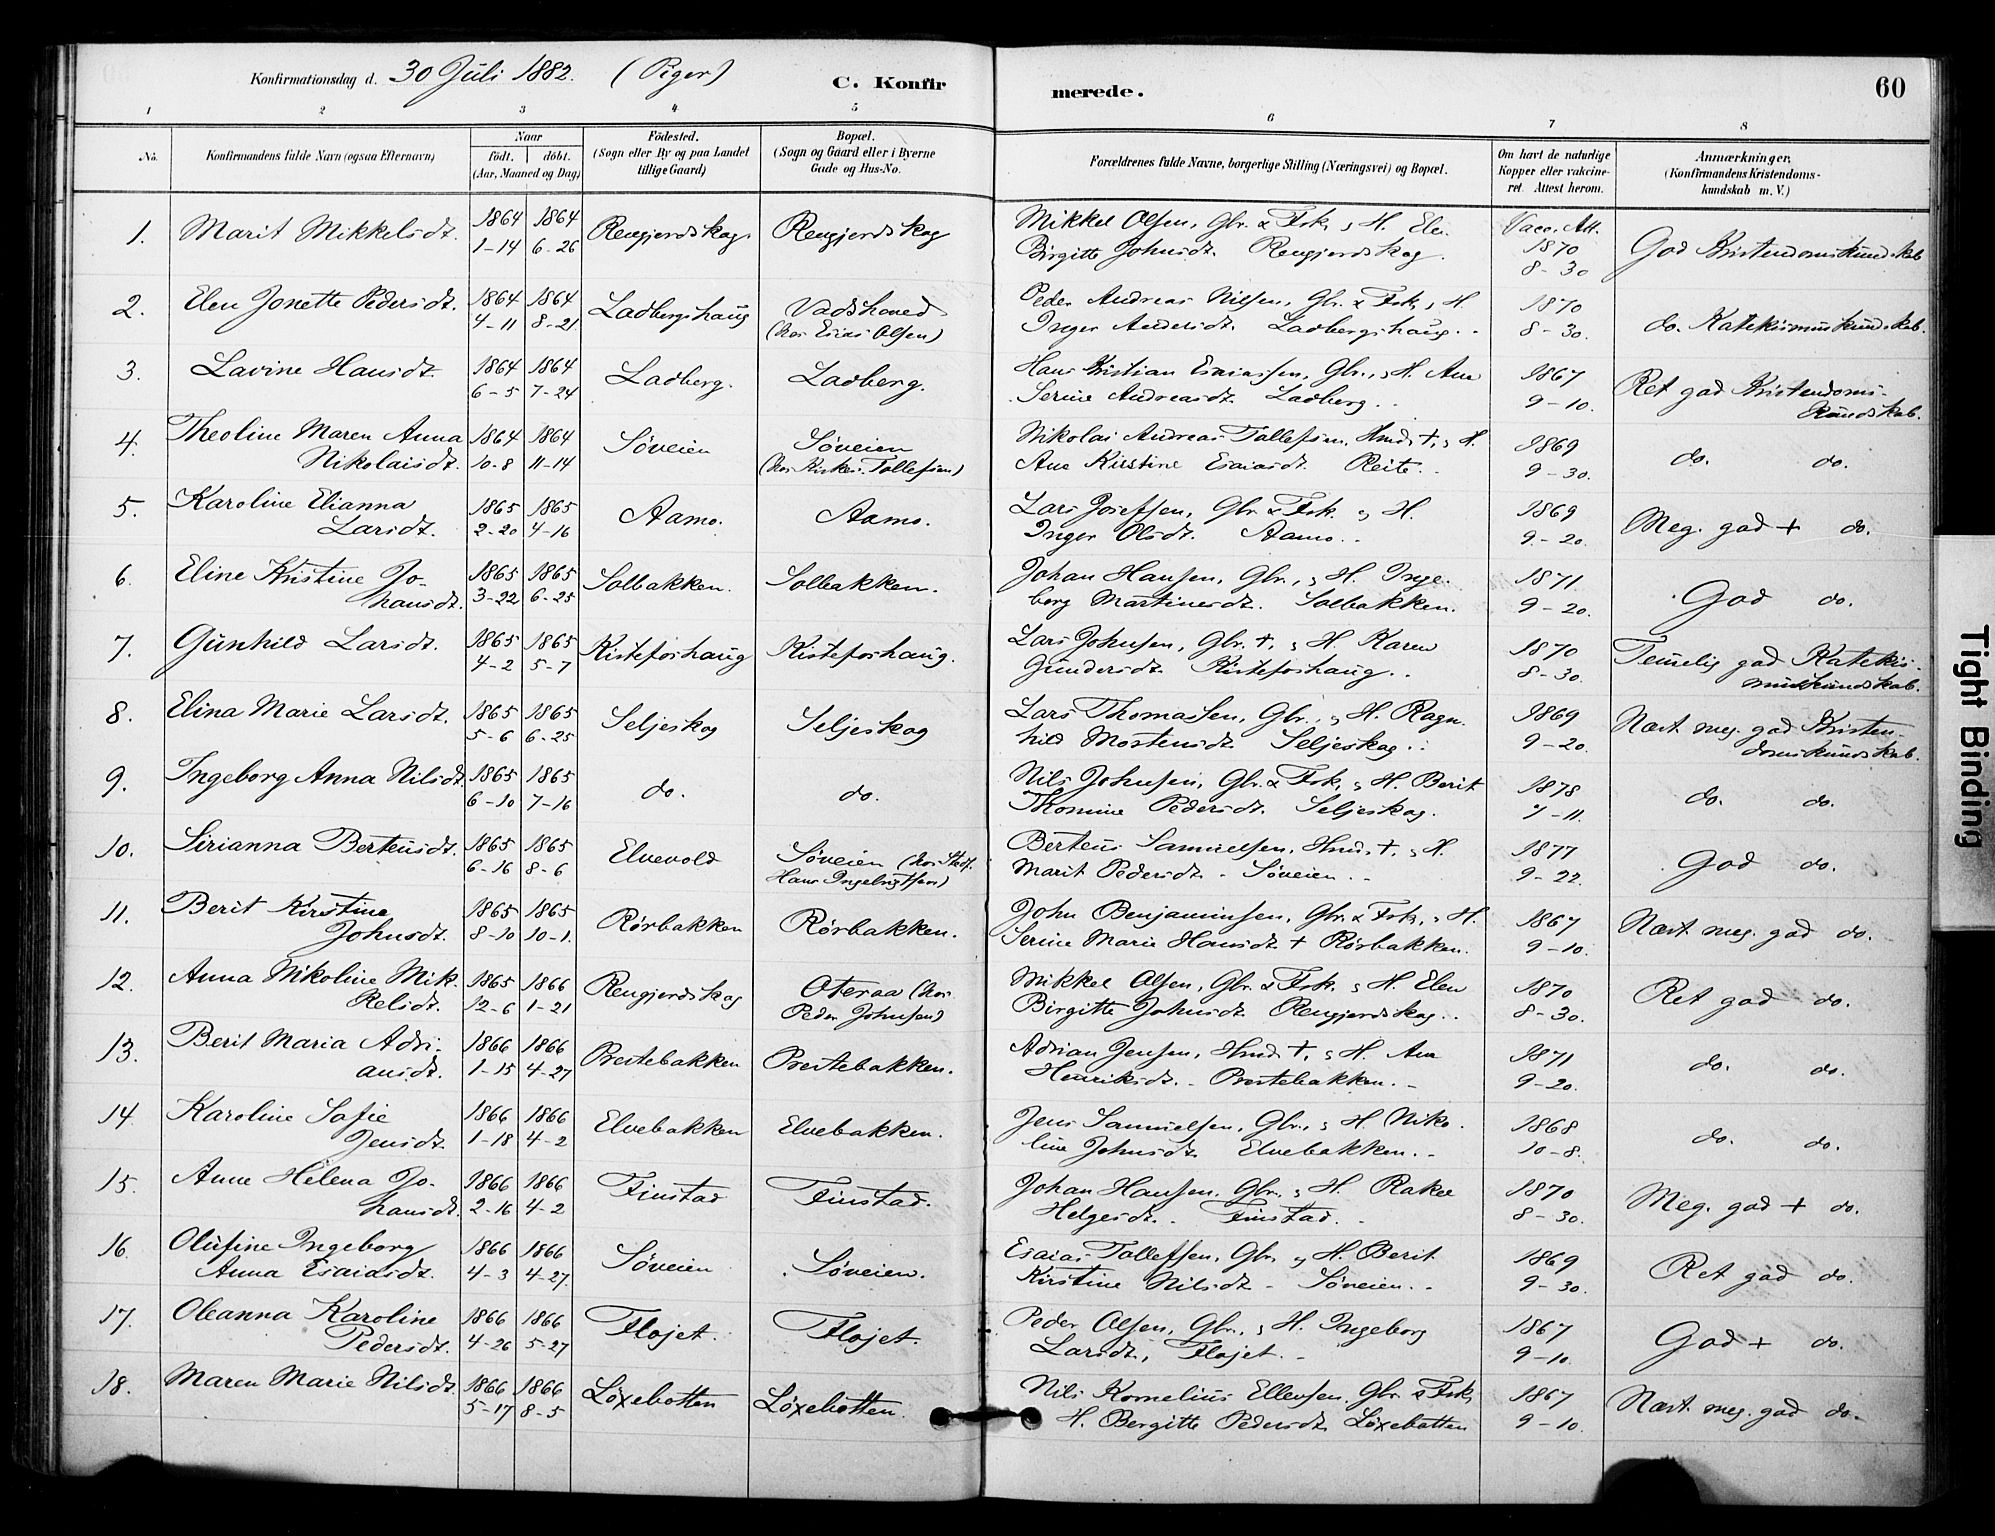 Konfirmationsdag d. 30 Juli 1882. (Piger) C. Konfirmerede. 60
1 2 3 4 5 6 7 8
No. Konfirmandens fulde Navn (ogsaa Efternavn) Naar født. døbt. (Aar, Maaned og Dag) Födested. (Sogn eller By og paa Landet tillige Gaard) Bopæl. (Sogn og Gaard eller i Byerne Gade og Hus-No. Forældrenes fulde Navne, borgerlige Stilling (Næringsvei) og Bopæl. Om havt de naturlige Kopper eller vakcineret. Attest herom. Anmærkninger, (Konfirmandens Kristendomskundskab m. V.)
1. Marit Mikkelsdt. 1864 1-14 1864 6-26 Rengjerdskag Rengjerdskag Mikkel Olsen, Gbr. & Fsk, & H. Elen
Birgitte Johnsdt. Rengjerdskag. Vacc. Att. 1870 8-30 God Kristendomskundskab
2. Elen Jonette Pedersdt. 1864 4-11 1864 8-21 Ladbergshaug Vadshaved
(hos Esias Olsen) Peder Andreas Nilsen, Gbr. & Fsk, & H.
Inger Andersdt. Ladbergshaug. 1870 8-30. do. Katekismuskundskab.
3. Lavine Hansdt. 1864 6-5 1864 7-24 Ladberg. Ladberg. Hans Kristian Esaiassen, Gbr., & H. Ane
Serine Andreasdt. Ladberg. 1867 9-10. Ret god Kristendoms-
kundskab.
4. Theoline Maren Anna
Nikolaisdt. 1864 10-8 1864 11-14 Søveien Søveien
Nikolai Andreas Tollefsen, Hmd. +, & H.
Ane Kirstine Esaiasdt. Reite. 1869 9-30. do. do.
5. Karoline Elianna
Larsdt. 1865 2-20 1865 4-16 Aamo. Aamo. Lars Josefsen, Gbr. & Fsk. & H.
Inger Olsdt. Aamo. 1869 9-20. Meg. god + do.
6. Eline Kristine Jo-
hansdt. 1865 3-22 1865 6-25 Solbakken. Solbakken. Johan Hansen, Gbr., & H. Inge-
borg Martinesdt. Solbakken. 1871 9-20. God do.
7. Gunhild Larsdt. 1865 4-2 1865 5-7 Kisteforshaug Kisteforshaug. Lars Johnsen, Gbr. +, & H. Karen
Gundersdt. Kisteforshaug. 1870 8-30. Temelig god Katekis-
muskundskab.
8. Elina Marie Larsdt. 1865 5-6 1865 6-25 Seljeskog Seljeskog Lars Thomassen, Gbr., & H. Ragn-
hild Mortensdt. Seljeskog. 1869 9-20. Næst meg. god Kristen-
domskundskab.
9. Ingeborg Anna Nilsdt. 1865 6-10 1865 7-16 do. do. Nils Johnsen, Gbr. & Fsk, & H. Berit
Thomine Pedersdt. Seljeskog. 1878 7-11. do. do.
10. Sirianna Berteusdt. 1865 6-16 1865 8-6 Elvevold Søveien (hos Stedf.
Hans Ingebrigtsen) Berteus Samuelsen, Hmd. +, & H.
Marit Pedersdt. - Søveien. 1877 9-22. God do.
11. Berit Kirstine
Johnsdt. 1865 8-10 1865 10-1. Rørbakken Rørbakken. John Benjaminsen, Gbr. & Fsk, & H.
Serine Marie Hansdt + Rørbakken. 1867 9-10. Næst meg. god do.
12. Anna Nikoline Mik-
kelsdt. 1865 12-6 1866 1-21 Rengjerdskag Oteraa (hos
Peder Johnsen) Mikkel Olsen, Gbr. & Fsk. & H. Elen
Birgitte Johnsdt. Rengjerdskag. 1870 8-30. Ret god do.
13. Berit Maria Adri-
ansdt. 1866 1-15 1866 4-27 Prestebakken Prestebakken. Adrian Jensen, Hmd. +, & H. Ane
Henriksdt. - Prestebakken. 1871 9-20. do. do.
14. Karoline Sofie
Jensdt. 1866 1-18 1866 4-2 Elvebakken Elvebakken. Jens Samuelsen, Gbr., & H. Niko-
line Johnsdt. Elvebakken. 1868 10-8. do. do.
15. Anne Helena Jo-
hansdt. 1866 2-16 1866 4-2 Finstad Finstad. Johan Hansen. Gbr. & H. Rakel
Helgesdt. - Finstad. 1870 8-30. Meg. god + do.
16. Olufine Ingeborg
Anna Esaiasdt. 1866 4-3 1866 4-27. Søveien Søveien. Esaias Tollefsen, Gbr. & H. Berit
Kirstine Nilsdt - Søveien. 1869 9-30. Ret god do.
17. Oleanna Karoline
Pedersdt. 1866 4-26 1866 5-27 Fløjet. Fløjet. Peder Olsen, Gbr., & H. Ingeborg
Larsdt, Fløjet. 1867 9-10. God + do.
18. Maren Marie Nilsdt. 1866 5-17 1866 8-5 Løxebotten Løxebotten. Nils Kornelius Ellevsen, Gbr. & Fsk,
H. Bergitte Pedersdt. Løxebotten 1867 9-10. Næst meg. god do.
Tight Binding